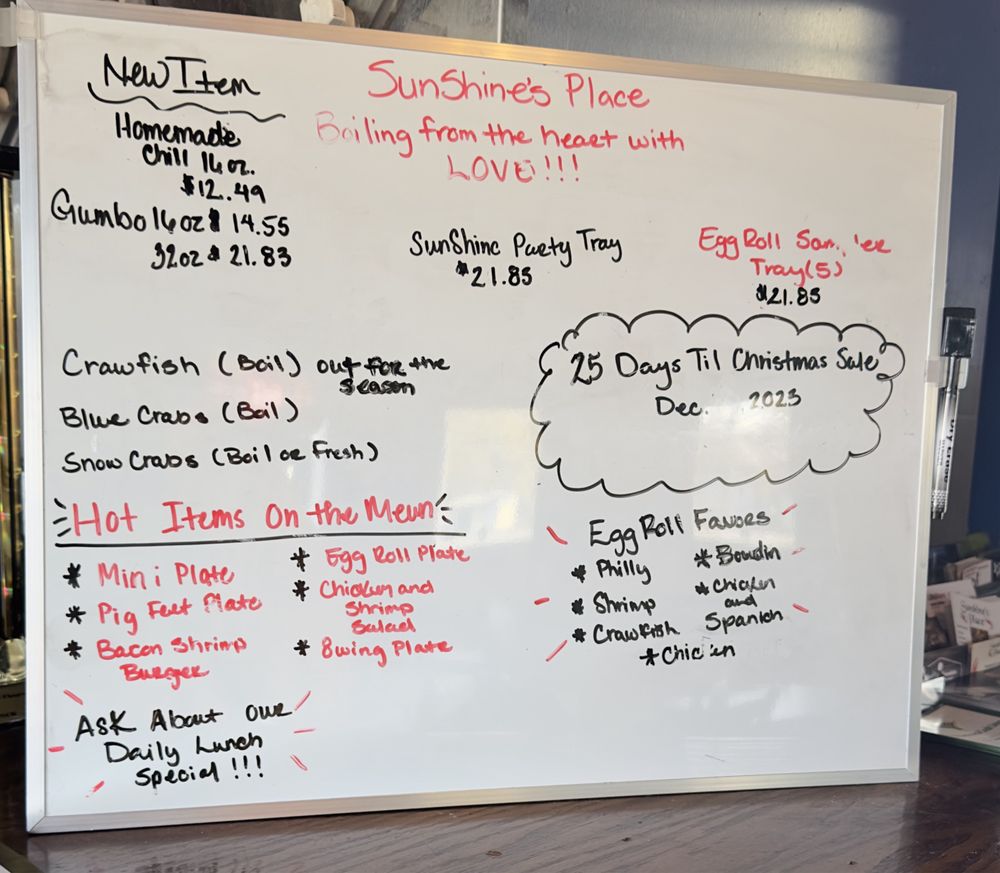 New Item
Homemade
Chill 16 oz.
$12.49
Gumbo 16 oz $ 14.55
32oz $ 21.83
SunShine's Place
Boiling from the heart with
LOVE!!!
SunShine Party Tray
$21.85
Egg Roll
Tray(5)
$21.85
Crawfish (Boil) out for the
Season
Blue Crabs (Boil)
Snow Crabs (Boil or Fresh)
25 Days Til Christmas Sale
Dec. 2023
Hot Items On the Meun
* Mini Plate
* Pig Feet Plate
* Bacon Shrimp
Burger
* Egg Roll Plate
* Chicken and
Shrimp
Salad
* 8wing Plate
Egg Roll Favors
* Philly
* Shrimp
* Crawfish
* Boudin
* Chicken
and
Spanich
* Chicken
Ask About our
Daily Lunch
Special!!!